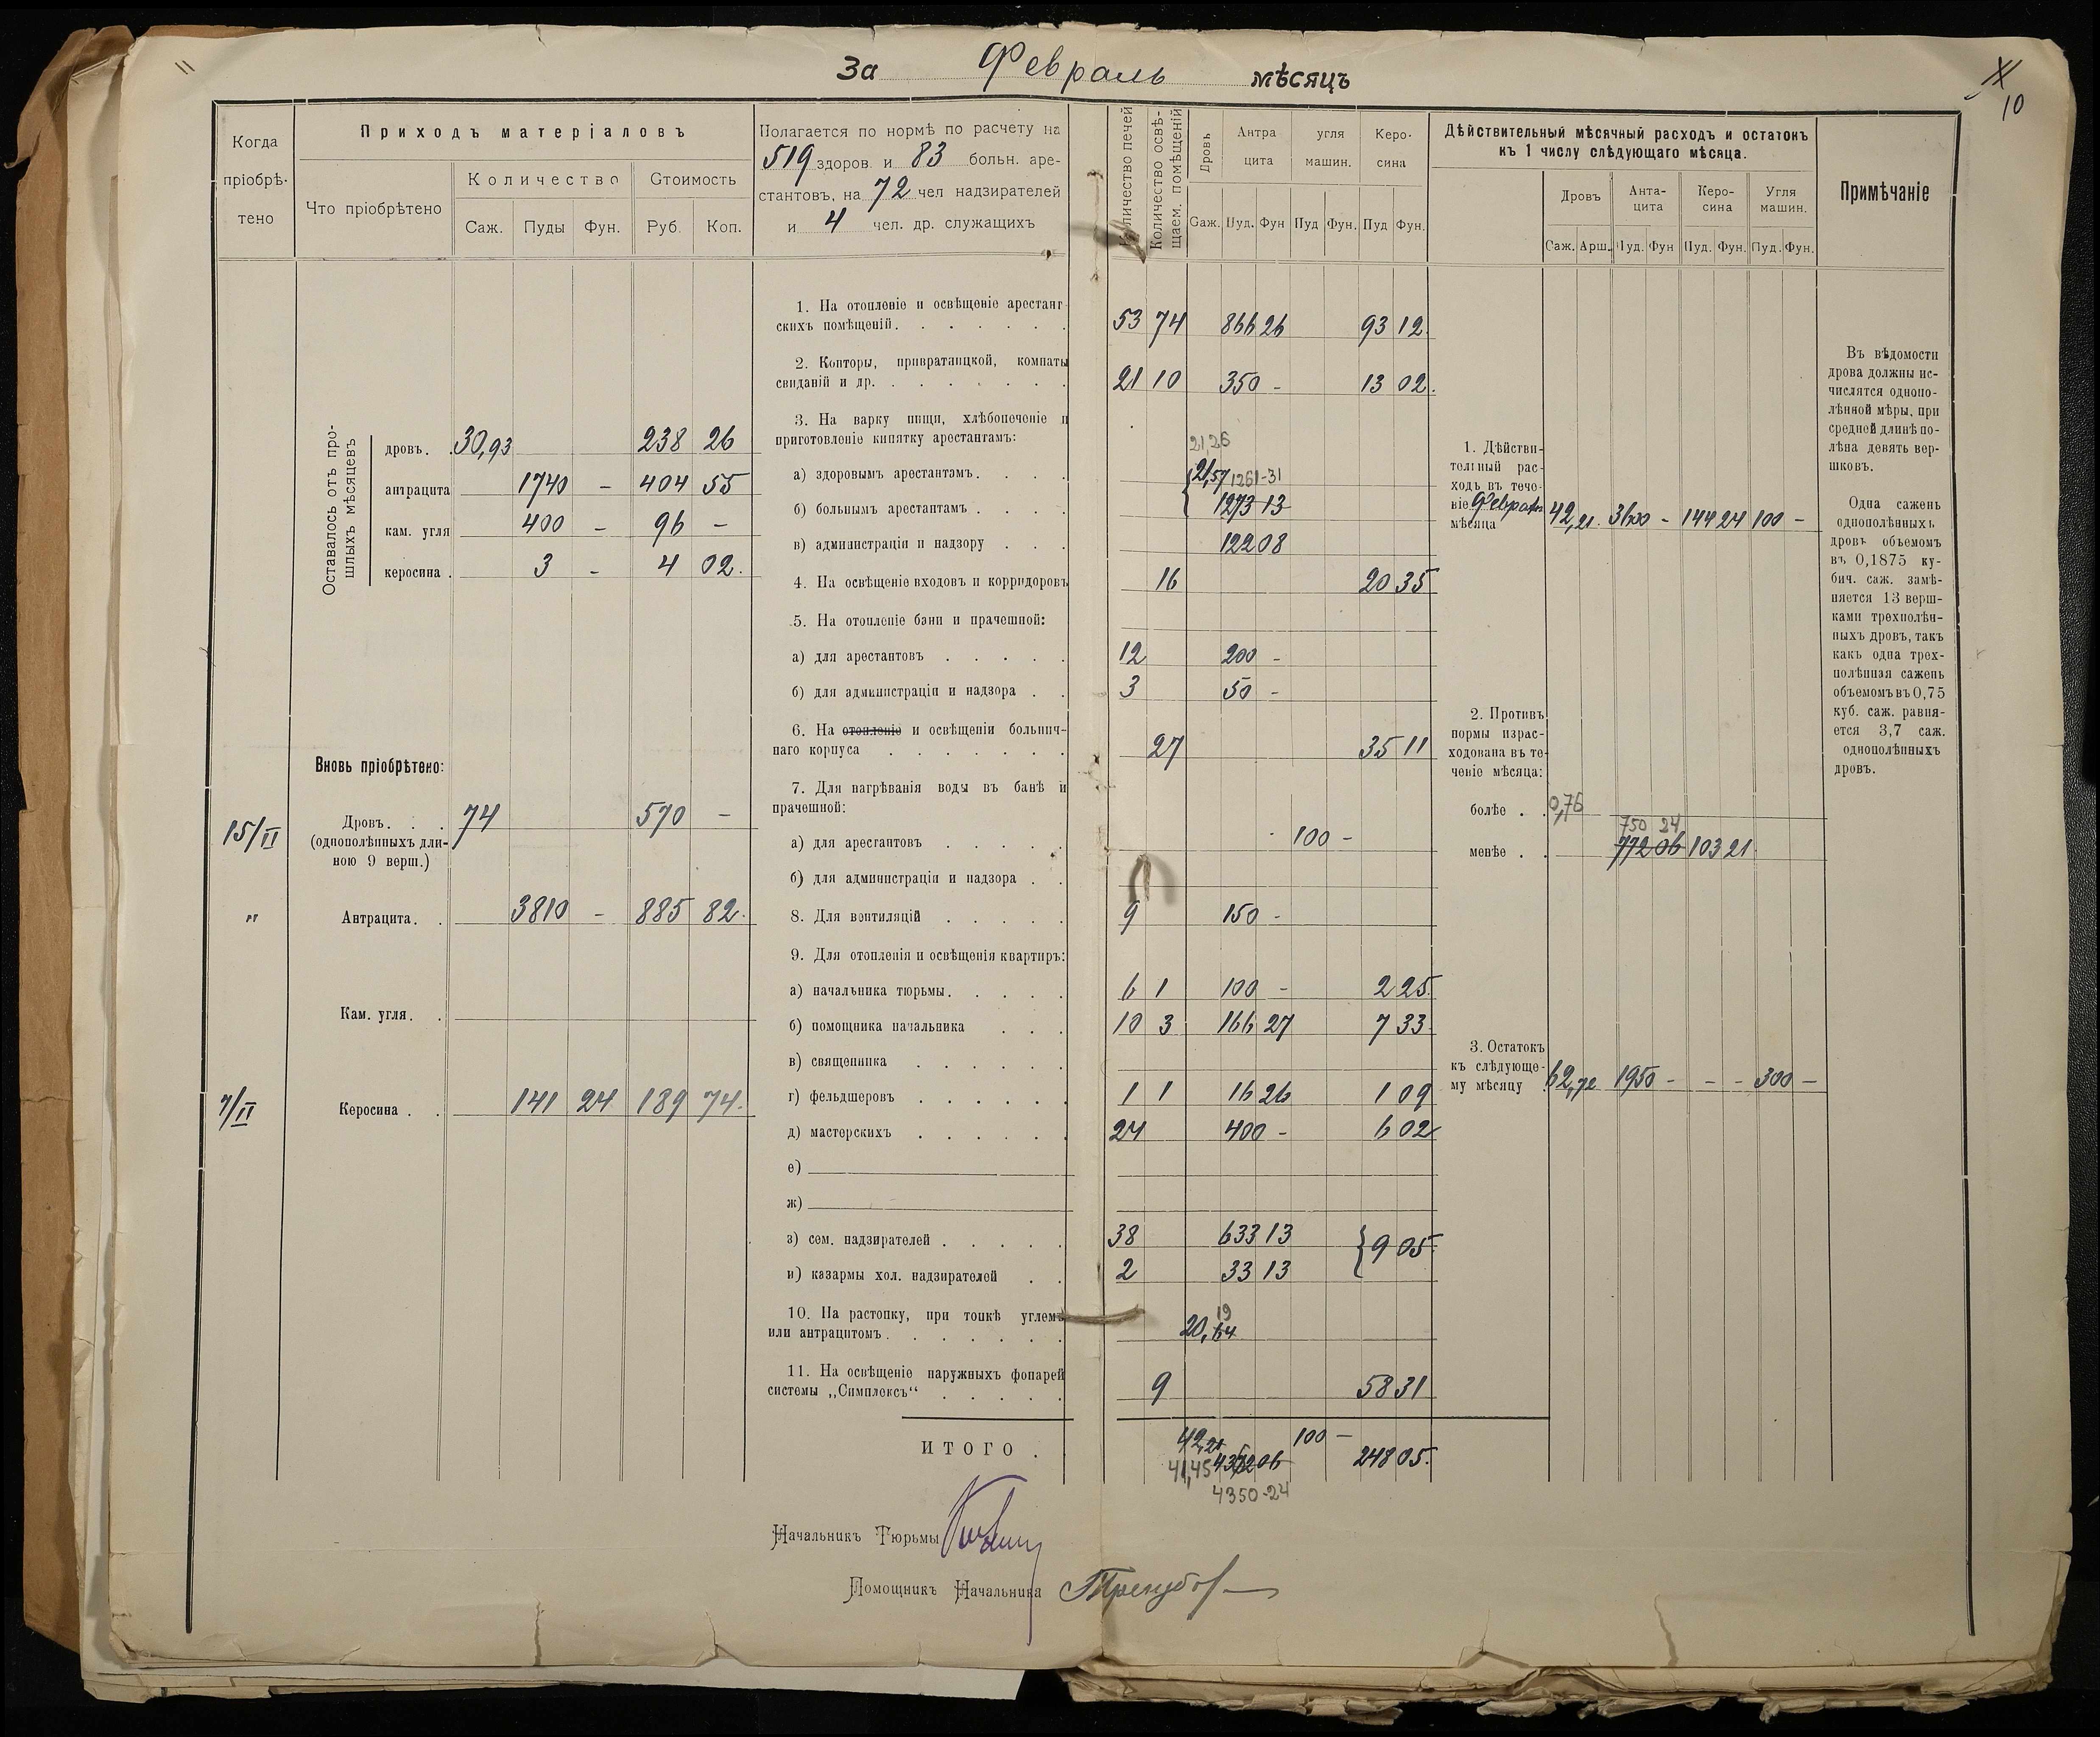 За Февраль мѣсяцъ
10
Когда пріобрѣтено
Приходъ матеріаловъ
Что пріобрѣтено
Количество
Стоимость
Саж. Пуды Фун. Руб. Коп.
Полагается по нормѣ по расчету на
519 здоров. и 83 больн. аре-
стантовъ, на 72 чел надзирателей
и 4 чел. др. служащихъ
Количество печей
Количество освѣ-
щаем. помѣщеній
Дровъ
Антра
цита
угля
машин.
Керо-
сина
Саж. Пуд. Фун Пуд Фун. Пуд Фун.
Дѣйствительный мѣсячный расходъ и остатокъ
къ 1 числу слѣдующаго мѣсяца.
Дровъ
Анта-
цита
Керо-
сина
Угля
машин.
Саж. Арш. Пуд. Фун Пуд. Фун. Пуд. Фун.
Примѣчаніе
Оставалось отъ про-
шлыхъ мѣсяцевъ
дровъ. 30,93 238 26
антрацита 1740 - 404 55
кам. угля 400 - 96 -
керосина . 3 - 4 02.
Вновь пріобрѣтено:
15/II Дровъ. . . 74 570 -
(однополѣнныхъ дли-
ною 9 верш.)
" Антрацита. . 3810 - 885 82.
Кам. угля. .
7/II Керосина . . 141 24 189 74.
1. На отопленіе и освѣщеніе арестант-
скихъ помѣщеній. 53 74 866 26 93 12.
2. Конторы, привратницкой, комнаты
свиданій и др. 21 10 350 - 13 02.
3. На варку пищи, хлѣбопеченіе и
приготовленіе кипятку арестантамъ:
21,26
а) здоровымъ арестантамъ. 21,57 1261-31
б) больнымъ арестантамъ . 1273 13
в) администраціи и надзору 122 08
4. На освѣщеніе входовъ и корридоровъ 16 20 35
5. На отопленіе бани и прачешной:
а) для арестантовъ 12 200 -
б) для администраціи и надзора . 3 50 -
6. На отопленіе и освѣщеніи больнич-
наго корпуса 27 35 11
7. Для нагрѣванія воды въ банѣ и
прачешной:
а) для арестантовъ 100 -
б) для администраціи и надзора .
8. Для вентиляцій 9 150 -
9. Для отопленія и освѣщенія квартиръ:
а) начальника тюрьмы. 6 1 100 - 2 25.
б) помощника начальника 10 3 166 27 7 33
в) священника
г) фельдшеровъ 1 1 16 26 1 09
д) мастерскихъ 24 400 - 6 02
е)
ж)
з) сем. надзирателей . 38 633 13 9 05.
и) казармы хол. надзирателей 2 33 13
10. На растопку, при топкѣ углемъ
или антрацитомъ. 20,64 19
11. На освѣщеніе наружныхъ фонарей
системы „Симплексъ“ 9 58 31
ИТОГО . 42,21 4372 06 100 - 248 05.
41,45 4350-24
1. Дѣйстви-
тельный рас-
ходъ въ тече-
ніе Февраля
мѣсяца 42,21. 3600 - 144 24 100 -
2. Противъ
нормы израс-
ходована въ те-
ченіе мѣсяца:
болѣе . . 0,76
750 24
менѣе . . 772 06 103 21
3. Остатокъ
къ слѣдующе-
му мѣсяцу 62,72 1950 - - - 300 -
Въ вѣдомости
дрова должны ис-
числятся однопо-
лѣнной мѣры, при
средней длинѣ по-
лѣна девять вер-
шковъ.
Одна сажень
однополѣнныхъ
дровъ объемомъ
въ 0,1875 ку-
бич. саж. замѣ-
няется 13 верш-
ками трехполѣн-
ныхъ дровъ, такъ
какъ одна трех-
полѣнная сажень
объемомъ въ 0,75
куб. саж. равня-
ется 3,7 саж.
однополѣнныхъ
дровъ.
Начальникъ Тюрьмы
Помощникъ Начальника